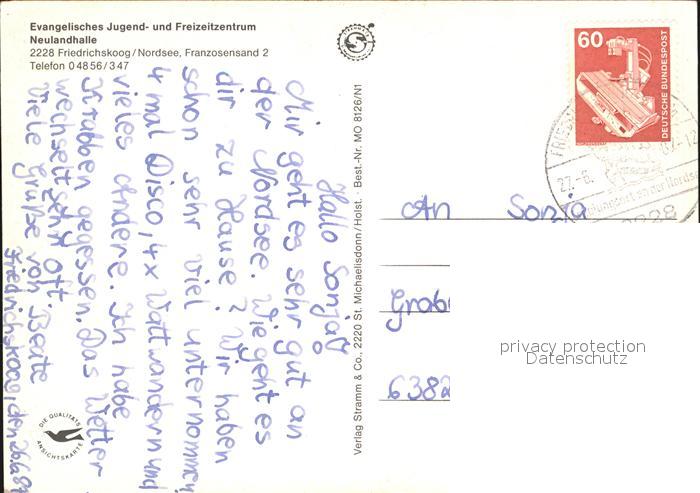 Evangelisches Jugend- und Freizeitzentrum
Neulandhalle
2228 Friedrichskoog/Nordsee, Franzosensand 2
Telefon 0 48 56 / 3 47
Hallo Sonja
Mir geht es sehr gut an
der Nordsee. Wie geht es
dir zu Hause? Wir haben
schon sehr viel unternommen
4 mal Disco, 4x Wattwandern und
vieles andere. Ich habe
Krabben gegessen. Das Wetter
wechselt sehr oft.
Viele Grüße von Beate
Friedrichskoog, den 26.6.89
DIE QUALITÄTS
ANSICHTSKARTE
Verlag Stramm & Co., 2220 St. Michaelisdonn/Holst. · Best.-Nr. MO 8126/N1
60
DEUTSCHE BUNDESPOST
27.-6.
2228
An Sonja
Grab
6382
privacy protection
Datenschutz